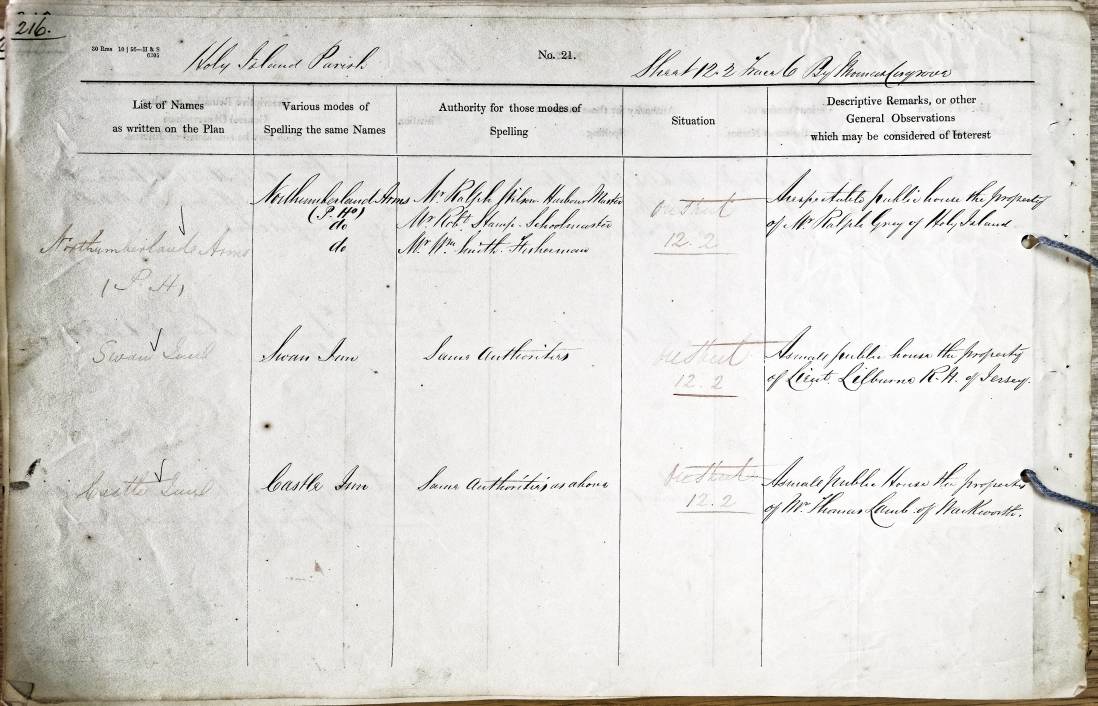 216.
30 Rms 10 | 56—H & S
6305
Holy Island Parish
No. 21.
Sheet 12.2 Trace 6 By Thomas Cosgrove
List of Names
as written on the Plan
Various modes of
Spelling the same Names
Authority for those modes of
Spelling
Situation
Descriptive Remarks, or other
General Observations
which may be considered of Interest
Northumberland Arms
(P. H)
Northumberland Arms
(P. Ho)
do
do
Mr. Ralph Wilson Harbour Master
Mr. Robt. Stamp. Schoolmaster
Mr. Wm. Smith. Fisherman
12.2
A respectable public house the property
of Mr. Ralph Grey of Holy Island
Swan Inn
Swan Inn
Same Authorities
12.2
A small public house the property
of Lieut. Lilburne R.N. of Jersey.
Castle Inn
Castle Inn
Same Authorities as above
12.2
A small public House the property
of Mr. Thomas Lamb of Warkworth.